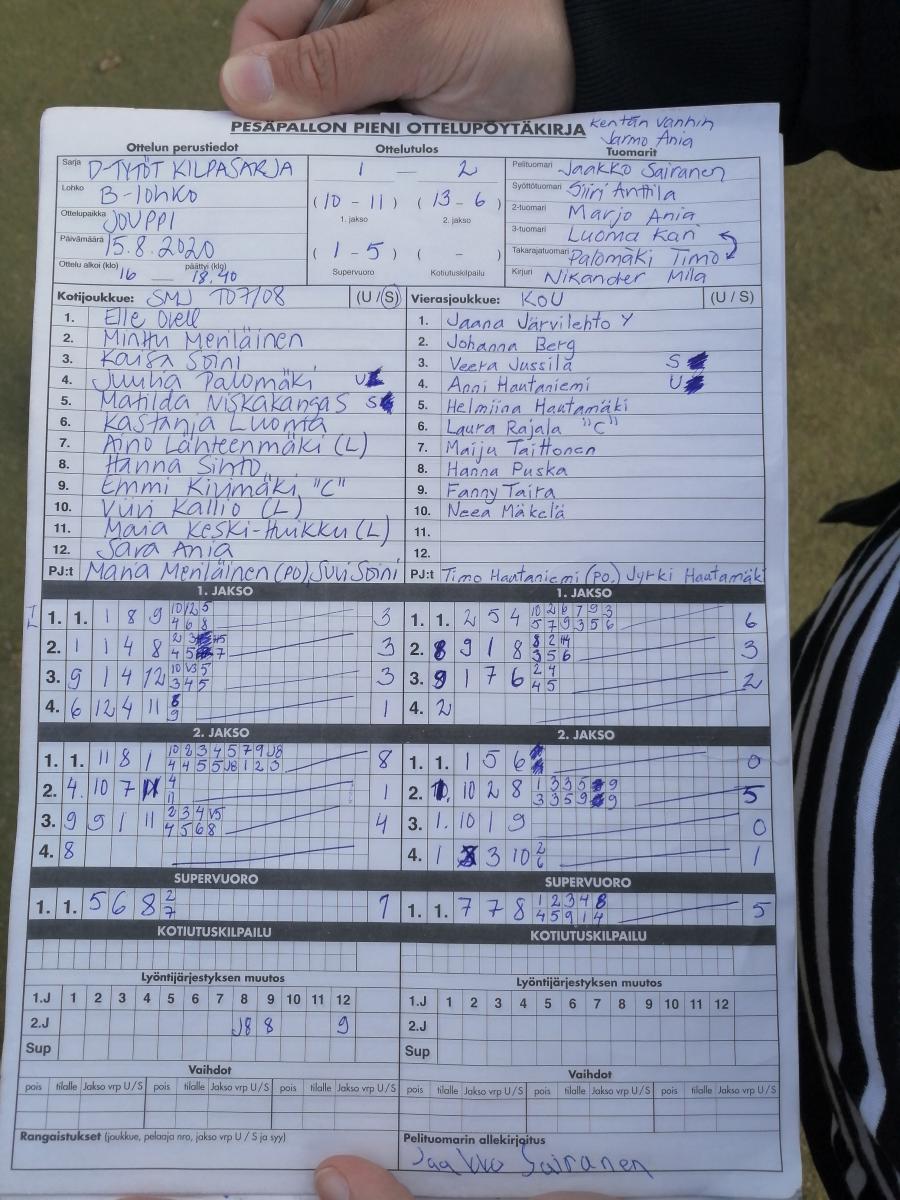 PESÄPALLON PIENI OTTELUPÖYTÄKIRJA
kentän vanhin
Jarmo Ania
Ottelun perustiedot
Ottelutulos
Tuomarit
Sarja D-TYTÖT KILPASARJA
1 — 2
Pelituomari Jaakko Sairanen
Lohko B-lohko
(10 - 11) (13 - 6)
1. jakso 2. jakso
Syöttötuomari Siiri Anttila
Ottelupaikka JOUPPI
2-tuomari Marjo Ania
Päivämäärä 15.8.2020
(1 - 5) ( - )
Supervuoro Kotiutuskilpailu
3-tuomari Luoma Kari
Takarajatuomari Palomäki Timo
Ottelu alkoi (klo) 16 — päättyi (klo) 18.40
Kirjuri Nikander Mila
Kotijoukkue: SMJ T07/08 (U / S)
Vierasjoukkue: KoU (U / S)
1. Elle
1. Jaana Järvilehto Y
2. Minttu Meriläinen
2. Johanna Berg
3. Kaisa Soini
3. Veera Jussila S
4. Juulia Palomäki U
4. Anni Hautaniemi U
5. Matilda Niskakangas S
5. Helmiina Hautamäki
6. Kastanja Luoma
6. Laura Rajala "C"
7. Aino Lähteenmäki (L)
7. Maiju Taittonen
8. Hanna
8. Hanna Puska
9. Emmi Kivimäki "C"
9. Fanny Taira
10. Viivi Kallio (L)
10. Neea Mäkelä
11. Maria Keski-Huikku (L)
11.
12. Sara Ania
12.
PJ:t Maria Meriläinen (PO) Suvi Soini
PJ:t Timo Hautaniemi (po.) Jyrki Hautamäki
1. JAKSO
1. 1. 1 8 9 10 12 5 3
4 6 8
2. 1 1 4 8 3
3. 9 1 4 12 10 V3 5 3
3 4 5
4. 6 12 4 11 8 1
9
1. JAKSO
1. 1. 2 5 4 10 2 6 7 9 3 6
5 7 9 3 5 6
2. 8 9 1 8 8 2 3
3 5 6
3. 9 1 7 6 2 4 2
4 5
4. 2
2. JAKSO
1. 1. 11 8 1 10 2 3 4 5 7 9 J8 8
4 4 5 5 J8 1 2 3
2. 4. 10 7 11 4 1
11
3. 9 9 1 11 2 3 4 V5 4
4 5 6 8
4. 8
2. JAKSO
1. 1. 1 5 6 0
2. 1. 10 2 8 1 3 3 5 9 5
3 3 5 9 9
3. 1. 10 1 9 0
4. 1 3 10 2 1
6
SUPERVUORO
1. 1. 5 6 8 2 1
7
SUPERVUORO
1. 1. 7 7 8 1 2 3 4 8 5
4 5 9 1 4
KOTIUTUSKILPAILU
KOTIUTUSKILPAILU
Lyöntijärjestyksen muutos
Lyöntijärjestyksen muutos
1.J 1 2 3 4 5 6 7 8 9 10 11 12
1.J 1 2 3 4 5 6 7 8 9 10 11 12
2.J J8 8 9
2.J
Sup
Sup
Vaihdot
Vaihdot
pois tilalle Jakso vrp U/S pois tilalle Jakso vrp U/S pois tilalle Jakso vrp U/S
pois tilalle Jakso vrp U/S pois tilalle Jakso vrp U/S pois tilalle Jakso vrp U/S
Rangaistukset (joukkue, pelaaja nro, jakso vrp U / S ja syy)
Pelituomarin allekirjoitus
Jaakko Sairanen